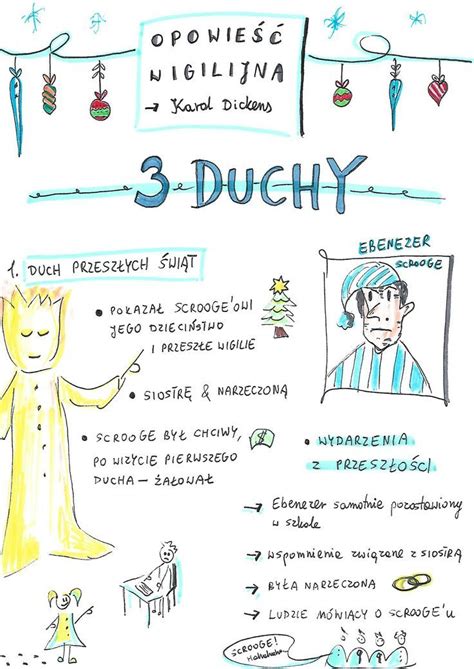 OPOWIEŚĆ
WIGILIJNA
→ Karol Dickens
3 DUCHY
EBENEZER
SCROOGE
1. DUCH PRZESZŁYCH ŚWIĄT
• POKAZAŁ SCROOGE'OWI
JEGO DZIECIŃSTWO
I PRZESZŁE WIGILIE
• SIOSTRĘ & NARZECZONĄ
• SCROOGE BYŁ CHCIWY,
PO WIZYCIE PIERWSZEGO
DUCHA — ŻAŁOWAŁ
$
• WYDARZENIA
Z PRZESZŁOŚCI
→ Ebenezer samotnie pozostawiony
w szkole
→ WSPOMNIENIE ZWIĄZANE Z SIOSTRĄ
→ BYŁA NARZECZONA
→ LUDZIE MÓWIĄCY O SCROOGE'U
SCROOGE!
Hahahaha